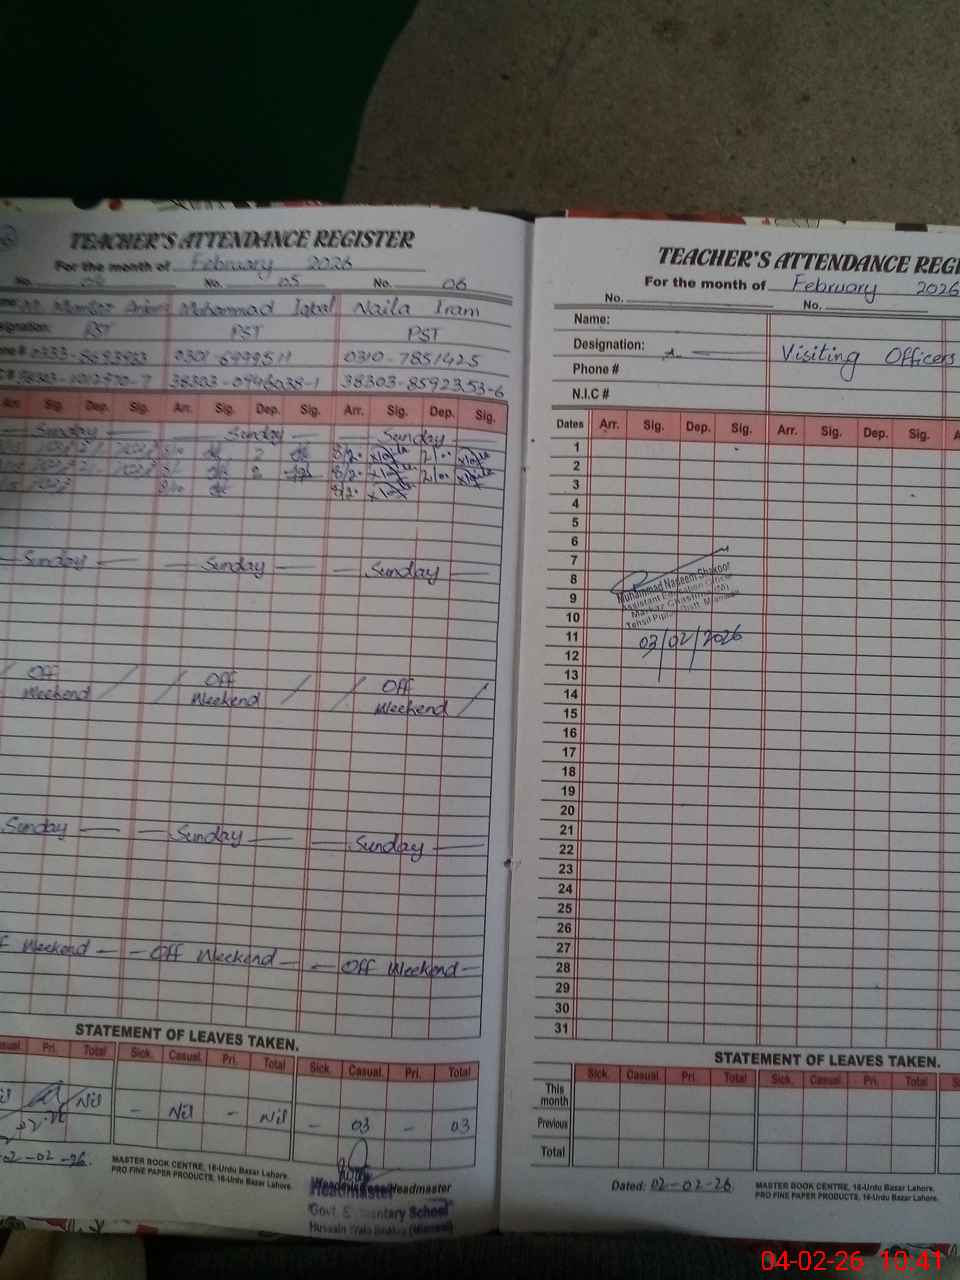 TEACHER'S ATTENDANCE REGISTER
For the month of February 2026
No. 04 No. 05 No. 06
Muhammad Iqbal Naila Iram
PST PST PST
0301-6999511 0310-7851425
38303-0946038-1 38303-8592353-6
Arr. Sig. Dep. Sig. Arr. Sig. Dep. Sig. Arr. Sig. Dep. Sig.
Sunday Sunday Sunday
Sunday Sunday Sunday
Off Off Off
Weekend Weekend Weekend
Sunday Sunday Sunday
Weekend Off Weekend Off Weekend
STATEMENT OF LEAVES TAKEN.
Casual Pri. Total Sick. Casual. Pri. Total Sick. Casual. Pri. Total
Nil Nil - Nil - Nil - 03 - 03
02-02-26.
MASTER BOOK CENTRE, 16-Urdu Bazar Lahore.
PRO FINE PAPER PRODUCTS, 16-Urdu Bazar Lahore.
Headmaster
Headmaster
Govt. Elementary School
TEACHER'S ATTENDANCE REGI
For the month of February 2026
No. No.
Name:
Designation: Visiting Officers
Phone #
N.I.C #
Dates Arr. Sig. Dep. Sig. Arr. Sig. Dep. Sig.
1
2
3
4
5
6
7
8
9
10
11
12
13
14
15
16
17
18
19
20
21
22
23
24
25
26
27
28
29
30
31
Muhammad Naseem Shakoor
Assistant Education Officer
03/02/2026
STATEMENT OF LEAVES TAKEN.
Sick. Casual. Pri. Total Sick. Casual. Pri. Total
This month
Previous
Total
Dated: 02-02-26
MASTER BOOK CENTRE, 16-Urdu Bazar Lahore.
PRO FINE PAPER PRODUCTS, 16-Urdu Bazar Lahore.
04-02-26 10:41